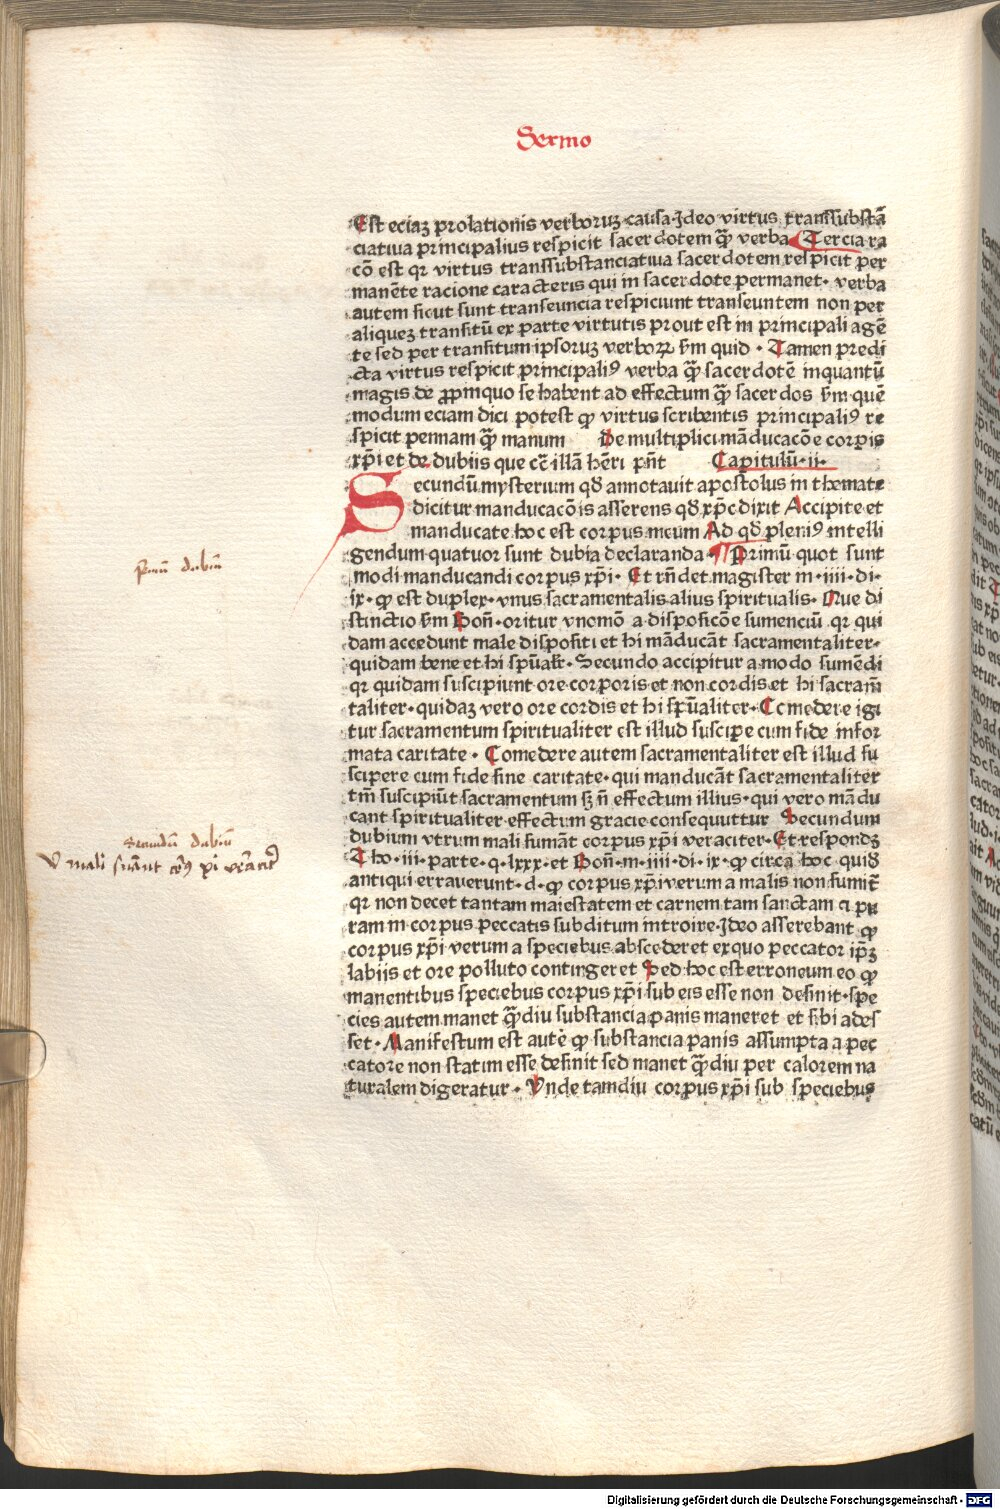 Sermo
Est eciaꝫ prolationis verboruꝫ causa·Ideo virtus transsubstā
ciatiua principalius respicit sacerdotem q̄ꝫ verba Tercia ra
cō est qꝛ virtus transsubstanciatiua sacerdotem respicit per
manēte racione caracteris qui in sacerdote permanet· verba
autem sicut sunt transeuncia respiciunt transeuntem non per
aliqueꝫ transitū ex parte virtutis prout est in principali agē
te sed per transitum ipsoruꝫ verboꝝ sm quid · Tamen predi
cta virtus respicit principaliꝰ verba q̄ꝫ sacerdotē inquantū
magis de ꝓpinquo se habent ad effectum q̄ꝫ sacerdos sm quē
modum eciam dici potest ꝙ virtus scribentis principaliꝰ re
spicit pennam q̄ꝫ manum De multiplici māducacōe corpis
xp̄i et de dubiis que cc̄ illā hēri pn̄t Capitulū·ii·
Secundū mysterium qd̄ annotauit apostolus in themate
dicitur manducacōis asserens qd̄ xp̄c dixit Accipite et
manducate hoc est corpus meum Ad qd̄ pleniꝰ intelli
gendum quatuor sunt dubia declaranda · Primū quot sunt
modi manducandi corpus xp̄i· Et rn̄det magister in·iiii·di·
ix·ꝙ est duplex·vnus sacramentalis alius spiritualis· Que di
stinctio sm Bon̄·oritur vnomō a disposicōe sumenciū qꝛ qui
dam accedunt male dispositi et hi māducāt sacramentaliter·
quidam bene et hi sp̄ualr̄· Secundo accipitur a modo sumēdi
qꝛ quidam suscipiunt ore corporis et non cordis et hi sacram̄
taliter·quidaꝫ vero ore cordis et hi sp̄ualiter· Comedere igi
tur sacramentum spiritualiter est illud suscipe cum fide infor
mata caritate · Comedere autem sacramentaliter est illud su
scipere cum fide sine caritate·qui manducāt sacramentaliter
tm̄ suscipiūt sacramentum sꝫ n̄ effectum illius·qui vero mādu
cant spiritualiter effectum gracie consequuttur Secundum
dubium vtrum mali sumāt corpus xp̄i veraciter·Et respondꝫ
Tho·iii·parte·q·lxxx·et Bon̄·in·iiii·di·ix·ꝙ circa hoc quid̄
antiqui errauerunt·d·ꝙ corpus xp̄i verum a malis non sumit̄
qꝛ non decet tantam maiestatem et carnem tam sanctam a pu
ram in corpus peccatis subditum introire·Ideo asserebant ꝙ
corpus xp̄i verum a speciebus abscederet ex quo peccator ip̄ꝫ
labiis et ore polluto contingeret Sed hoc est erroneum eo ꝙ
manentibus speciebus corpus xp̄i sub eis esse non desinit·spe
cies autem manet q̄ꝫdiu substancia panis maneret et sibi ades
set· Manifestum est autē ꝙ substancia panis assumpta a pec
catore non statim esse desinit sed manet q̄ꝫdiu per calorem na
turalem digeratur · Vnde tamdiu corpus xp̄i sub speciebus
primū dubiū
Secundū dubiū
V mali sumūt corꝰ xp̄i veracit̄
Digitalisierung gefördert durch die Deutsche Forschungsgemeinschaft - DFG